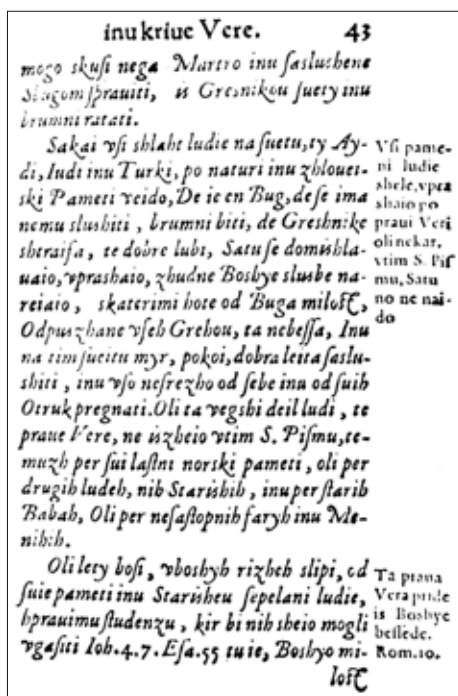 inu kriue Vere. 43
mogo skusi nega Martro inu ſaslushene
Slugom ſprauiti, is Greſnikou ſuety inu
brumni ratati.
Sakai vſi shlaht ludie na ſuetu, ty Ay-
di, Iudi inu Turki, po naturi inu zhlouet-
ski Pameti veido, De ie en Bug, de ſe ima
nemu slushiti, brumni biti, de Greshnike
shtraifa, te dobre lubi, Satu ſe domishla-
uaio, vprashaio, zhudne Boshye slusbe na-
reiaio, skaterimi hote od Buga miloſt,
Odpuszhane vſeh Grehou, ta nebeſſa, Inu
na tim ſueitu myr, pokoi, dobra leita ſaslu-
shiti, inu vſo neſrezho od ſebe inu od ſuih
Otruk pregnati. Oli ta vegshi deil ludi, te
praue Vere, ne iszheio vtim S. Piſmu, te-
muzh per ſui laſtni norski pameti, oli per
drugih ludeh, nih Starishih, inu per ſtarih
Babah, Oli per neſaſtopnih faryh inu Me-
nihih.
Vſi pame-
ni ludie
shele, vpra
shaio po
praui Veri
oli nekar,
vtim S. Piſ
mu, Satu
no ne nai-
do
Oli lety boſi, vboshyh rizheh slipi, od
ſuie pameti inu Starisheu ſepelani ludie,
hprauimu ſtudenzu, kir bi nih sheio mogli
vgaſiti Ioh. 4. 7. Eſa. 55 tu ie, Boshyo mi-
loſt
Ta praua
Vera pride
is Boshye
beſſede.
Rom. 10.